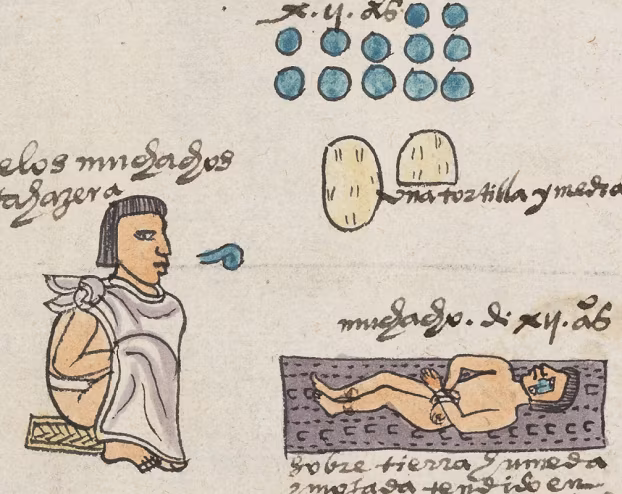 x.ij. aºs
elos muchachos
una tortilla y media
muchacho. di xij. aºs
sobre tierra humeda
y mojada tendido en